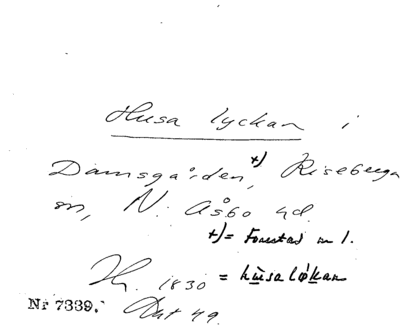 Husa lyckan i
Damsgården +), Riseberga
sn, N. Åsbo hd.
+) = Forestad nr 1.
Hr. 1830 = hùsaløkan
Nr 7339. Dat 49.